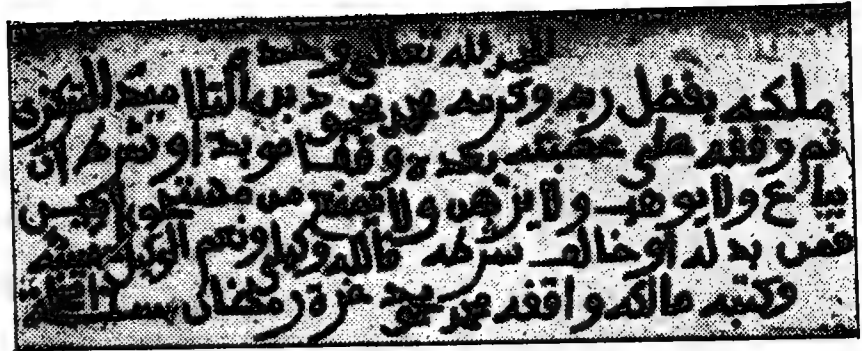 الحمد لله تعالى وحده
ملكه بفضل ربه وكرمه محمد محمود بن التلاميد التركزي
ثم وقفه على عصبته بعده وقفا موبدا وشرط ان
يباع ولايوهب ولايرهن ولا يمنع من
فمن بدله أو خالف شرطه فالله وكيلي ونعم الوكيل
وكتبه مالكه واقفه محمد محمود غرة رمضان